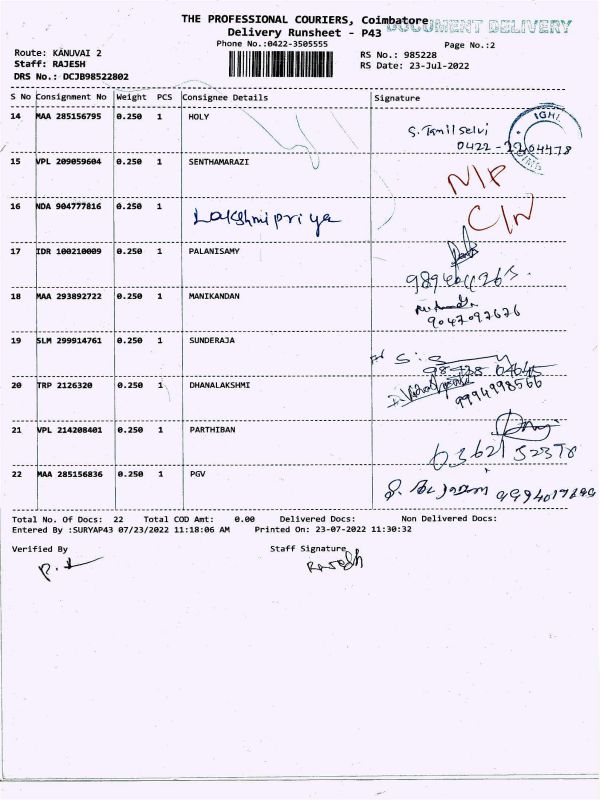 THE PROFESSIONAL COURIERS, Coimbatore
DOCUMENT DELIVERY
Delivery Runsheet - P43
Phone No.:0422-3505555
Page No.:2
Route: KANUVAI 2
RS No.: 985228
Staff: RAJESH
RS Date: 23-Jul-2022
DRS No.: DCJB98522802
S No Consignment No Weight PCS Consignee Details Signature
14 MAA 285156795 0.250 1 HOLY
S. Tamil selvi
0422-2204478
15 VPL 209059604 0.250 1 SENTHAMARAZI
N/P
16 NDA 904777816 0.250 1 Lakshmi priya
C/N
17 IDR 100210009 0.250 1 PALANISAMY
18 MAA 293892722 0.250 1 MANIKANDAN
9047097676
19 SLM 299914761 0.250 1 SUNDERAJA
20 TRP 2126320 0.250 1 DHANALAKSHMI
9994998566
21 VPL 214208401 0.250 1 PARTHIBAN
22 MAA 285156836 0.250 1 PGV
Total No. Of Docs: 22 Total COD Amt: 0.00 Delivered Docs: Non Delivered Docs:
Entered By :SURYAP43 07/23/2022 11:18:06 AM Printed On: 23-07-2022 11:30:32
Verified By Staff Signature
Rajesh